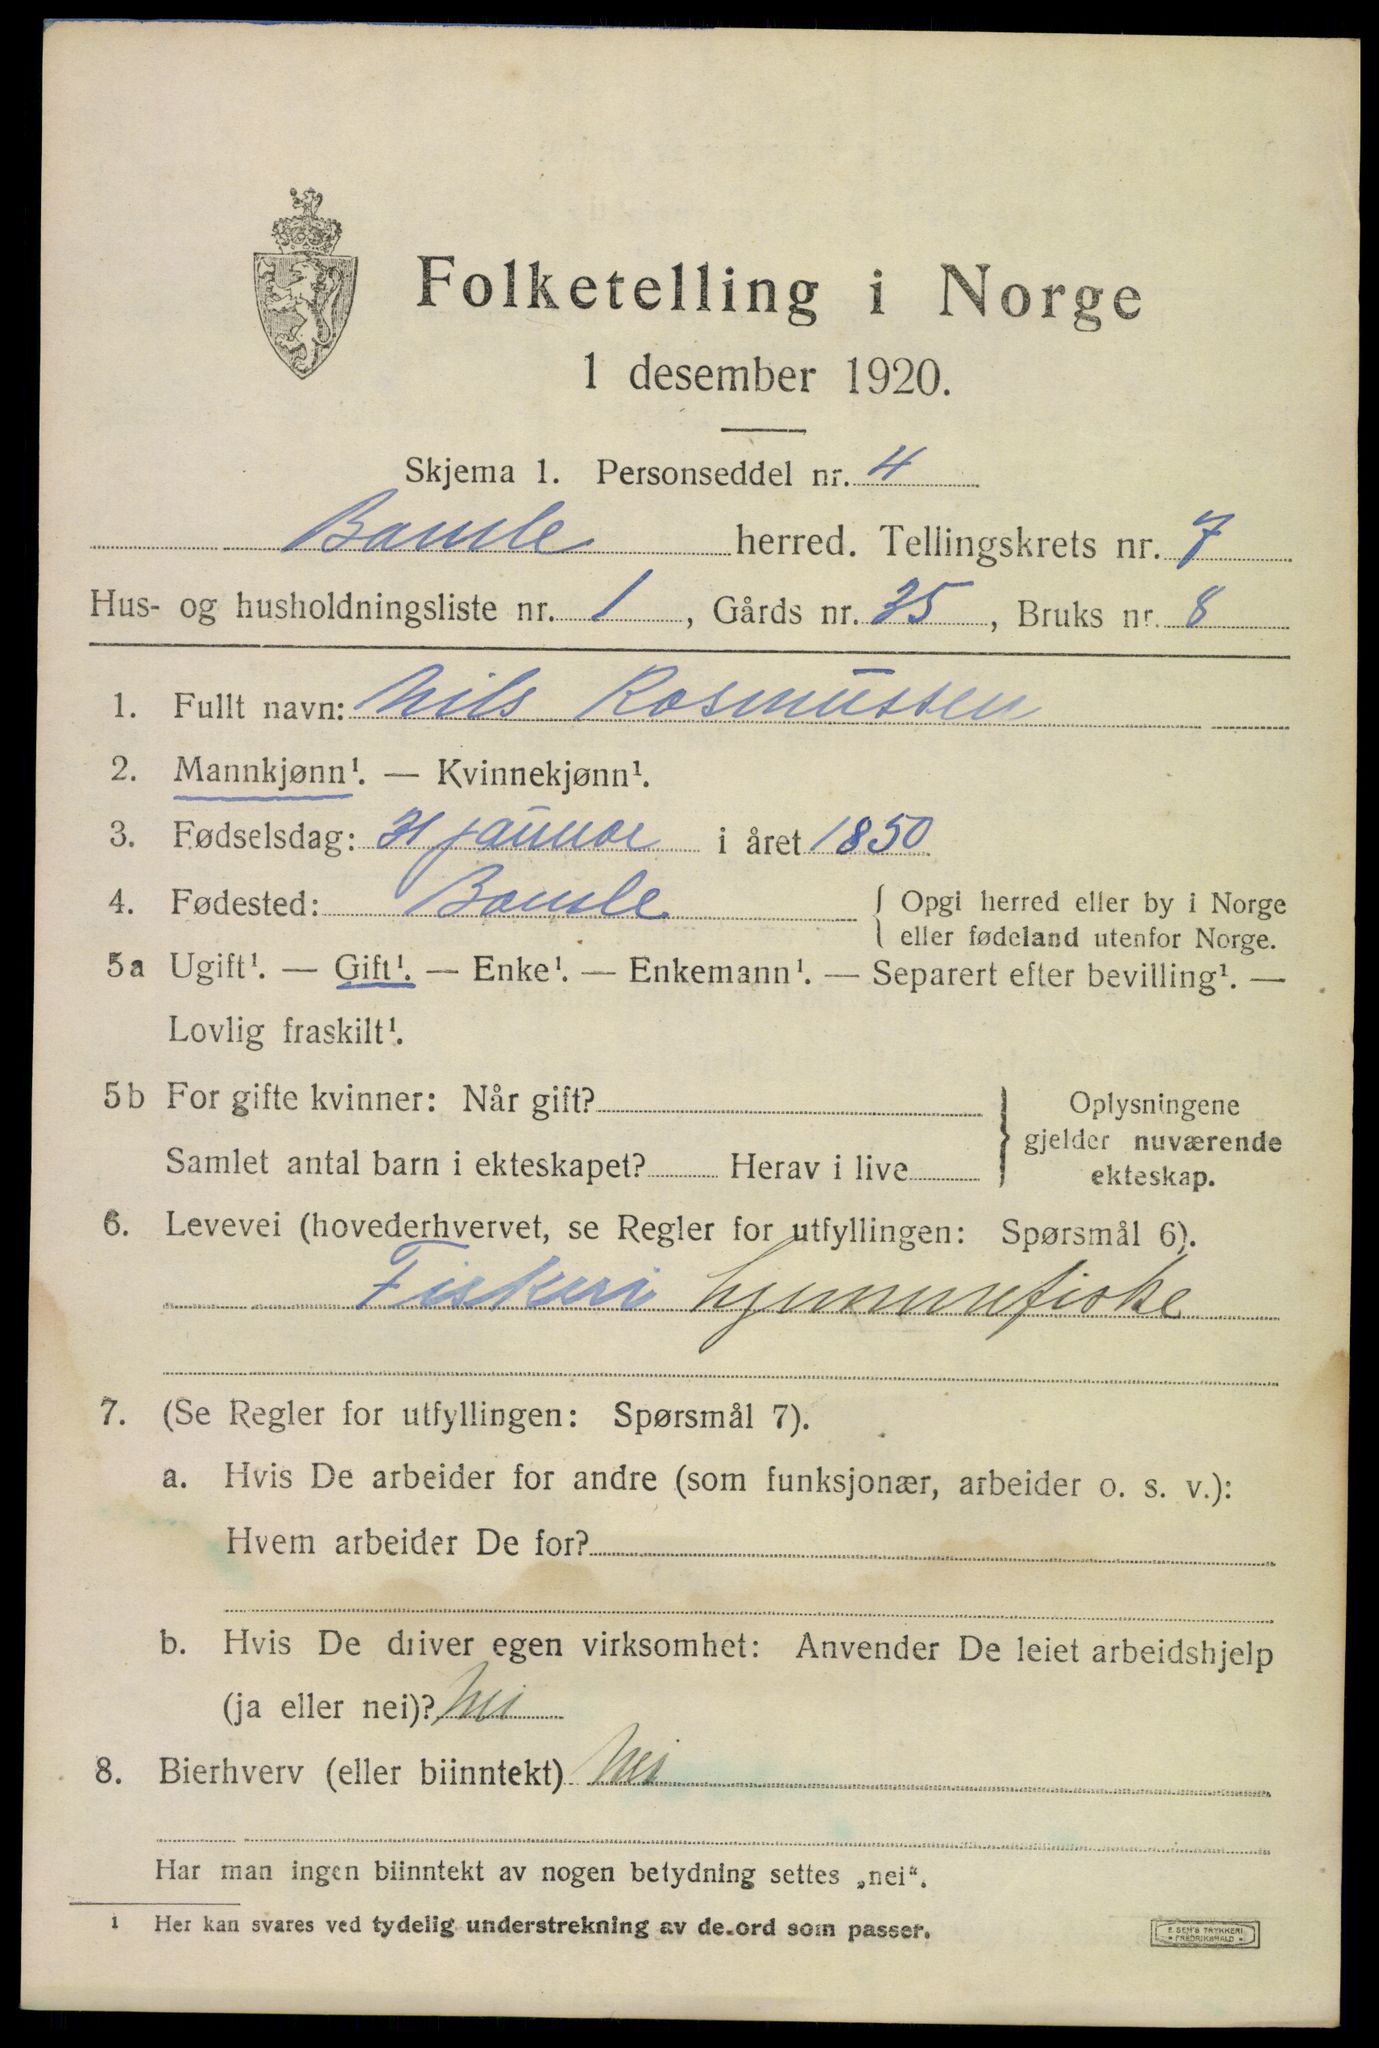 Folketelling i Norge
1 desember 1920.
Skjema 1. Personseddel nr. 4
Bamle herred. Tellingskrets nr. 7
Hus- og husholdningsliste nr. 1, Gårds nr. 35, Bruks nr. 8
1. Fullt navn: Nils Rasmussen
2. Mannkjønn¹. — Kvinnekjønn¹.
3. Fødselsdag: 31 januar i året 1850
4. Fødested: Bamle { Opgi herred eller by i Norge
eller fødeland utenfor Norge.
5a Ugift¹. — Gift¹. — Enke¹. — Enkemann¹. — Separert efter bevilling¹. —
Lovlig fraskilt¹.
5b For gifte kvinner: Når gift? } Oplysningene
gjelder nuværende
Samlet antal barn i ekteskapet? Herav i live
ekteskap.
6. Levevei (hovederhvervet, se Regler for utfyllingen: Spørsmål 6).
Fiskeri hjemmefiske
7. (Se Regler for utfyllingen: Spørsmål 7).
a. Hvis De arbeider for andre (som funksjonær, arbeider o. s. v.):
Hvem arbeider De for?
b. Hvis De driver egen virksomhet: Anvender De leiet arbeidshjelp
(ja eller nei)? Nei
8. Bierhverv (eller biinntekt) Nei
Har man ingen biinntekt av nogen betydning settes „nei“.
1 Her kan svares ved tydelig understrekning av de ord som passer.
TRYKKERI
FREDRIKSHALD